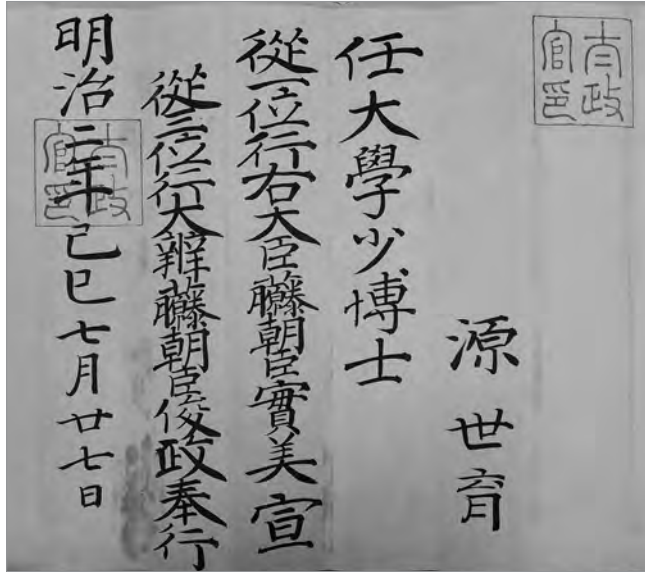 太政官印
源世育
任大學少博士
從一位行右大臣藤朝臣實美宣
從三位行大辨藤朝臣俊政奉行
明治二年己巳七月廿七日
太政官印